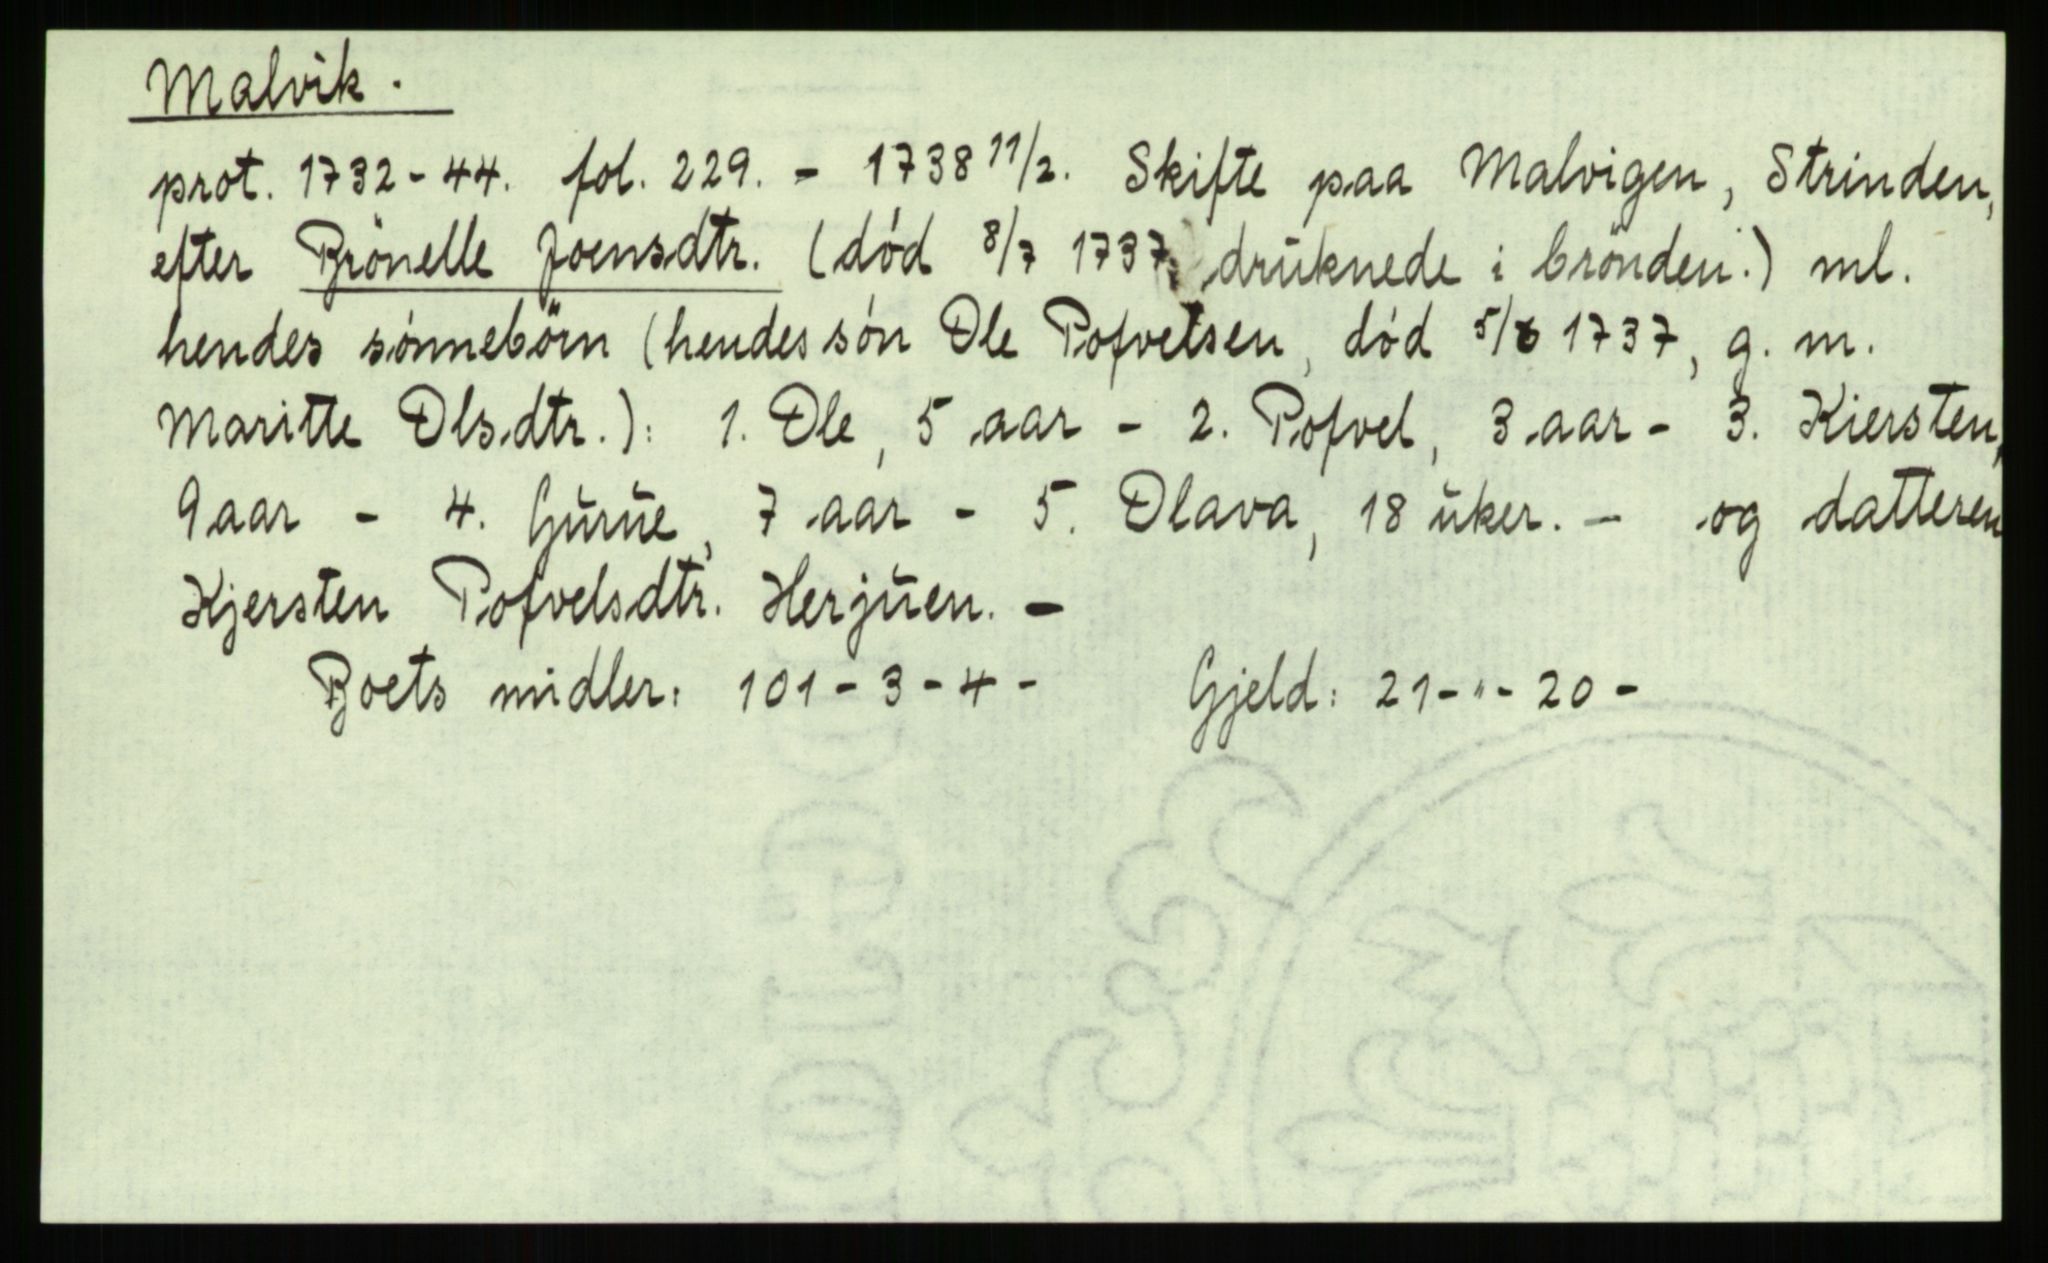 Malvik.
prot. 1732-44. fol. 229. - 1738 11/2. Skifte paa Malvigen, Strinden,
efter Brönelle Joensdtr. (død 8/7 1737, drŭknede i brönden.) ml.
hendes sønnebörn (hendes søn Ole Pofvelsen, død 5/6 1737, g. m.
Maritte Olsdtr.): 1. Ole, 5 aar - 2. Pofvel, 3 aar - 3. Kiersten,
9 aar - 4. Gŭrŭe, 7 aar - 5. Olava, 18 ŭker. - og datteren
Kjersten Pofvelsdtr. Herjŭen. -
Boets midler: 101 - 3 - 4 - Gjeld: 21 - " - 20 -